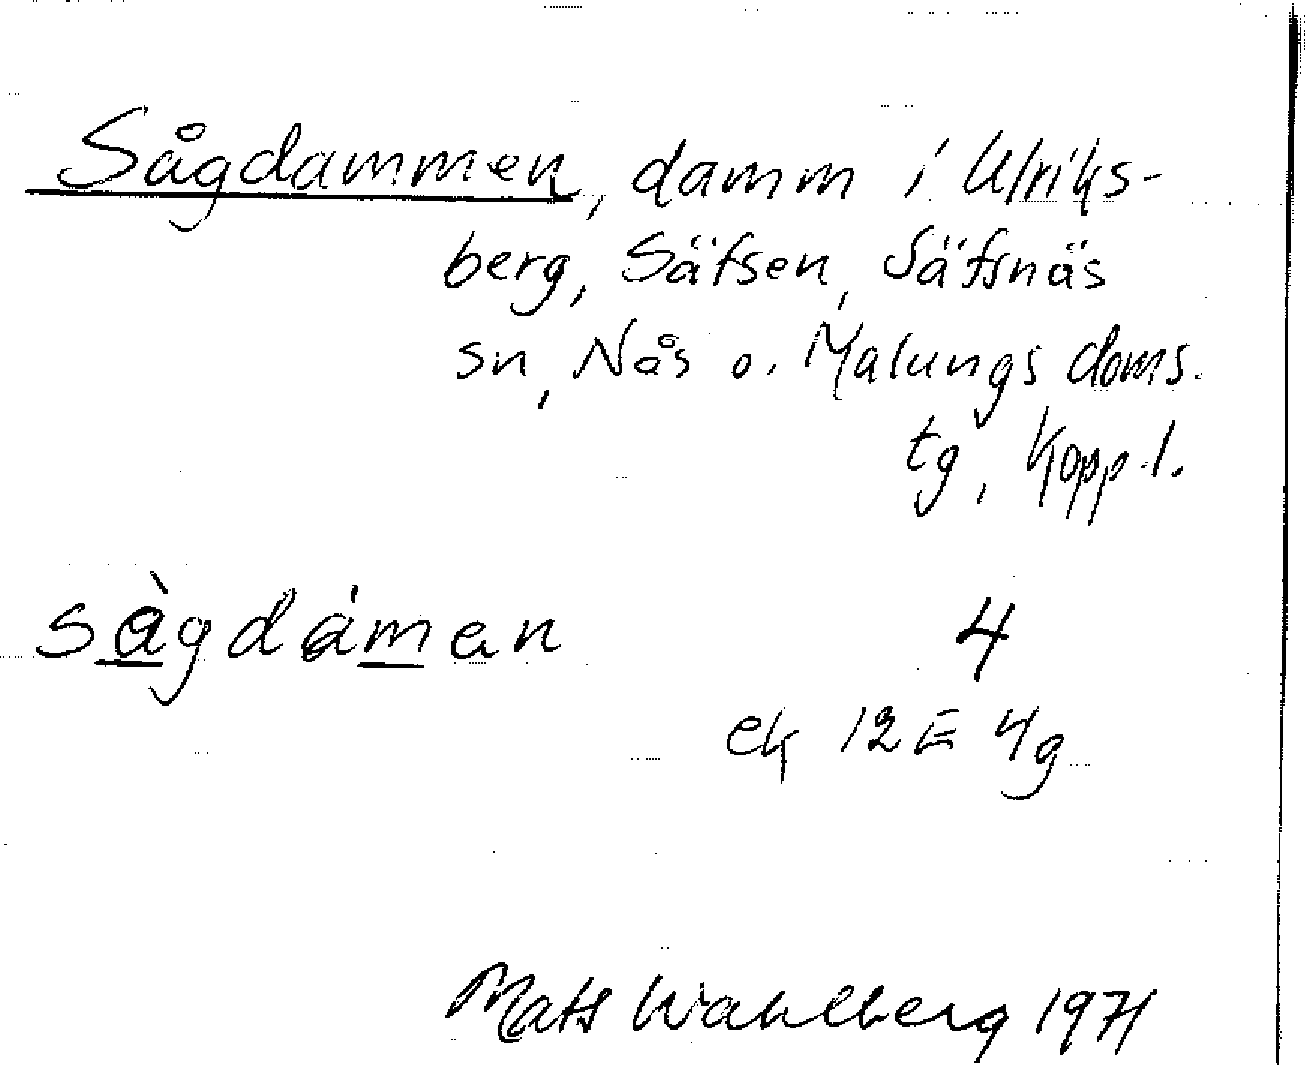 Sågdammen, damm i Ulriks-
berg, Säfsen, Säfsnäs
sn, Nås o. Malungs doms.
tg, Kopp.l.
sàgdámen 4
ek 12E 4g
Mats Wahlberg 1971